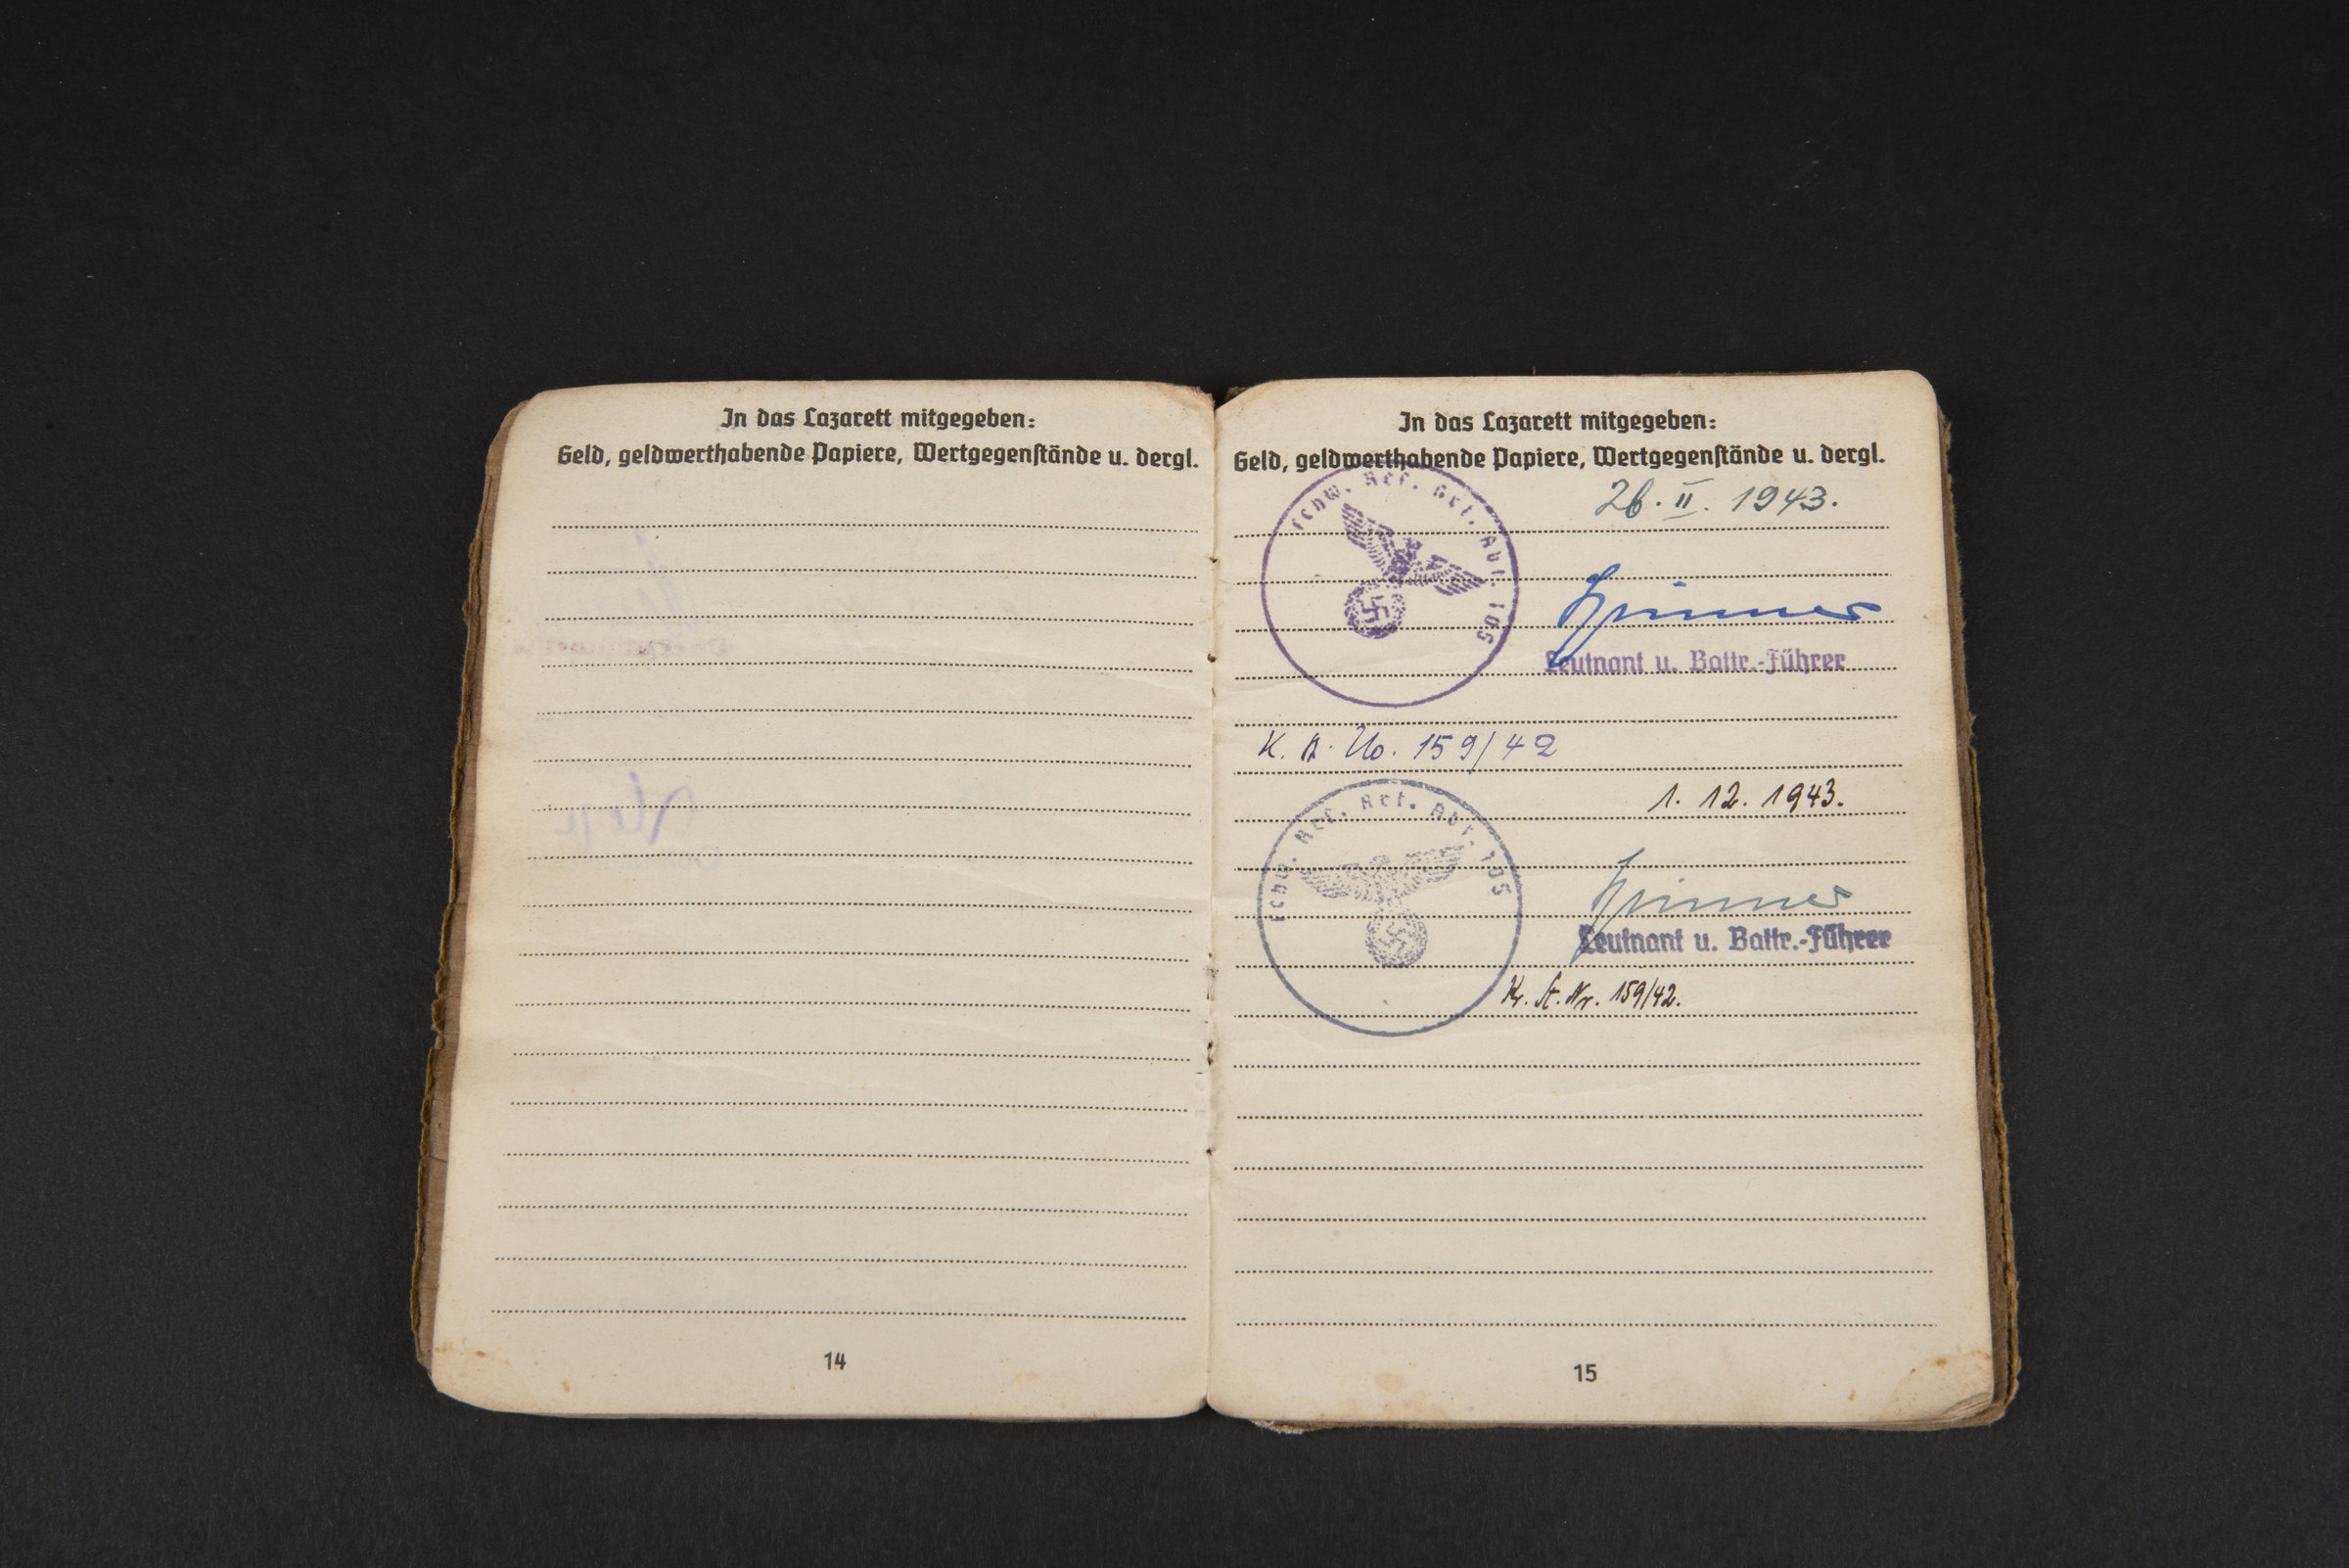 In das Lazarett mitgegeben:
Geld, geldwerthabende Papiere, Wertgegenstände u. dergl.
14
In das Lazarett mitgegeben:
Geld, geldwerthabende Papiere, Wertgegenstände u. dergl.
26. II. 1943.
schw. Art. Abt. 105
Leutnant u. Battr.-Führer
K. A. No. 159/42
1. 12. 1943.
schw. Art. Abt. 105
Leutnant u. Battr.-Führer
Kr. St. Nr. 159/42.
15